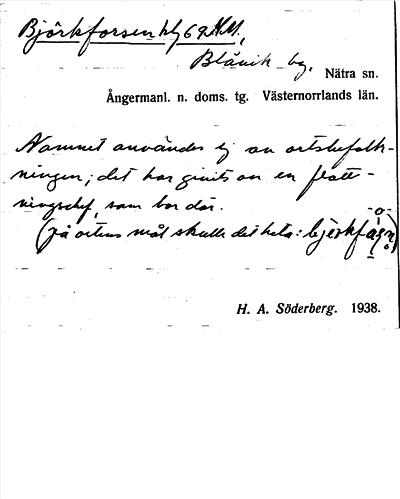 Björkforsen hlg 69 M.M.,
Blåvik by.
Nätra sn.
Ångermanl. n. doms. tg. Västernorrlands län.
Namnet användes ej av ortsbefolk-
ningen; det har givits av en flott-
ningschef, som bor där.
(på ortens mål skulle det heta:
H. A. Söderberg. 1938.